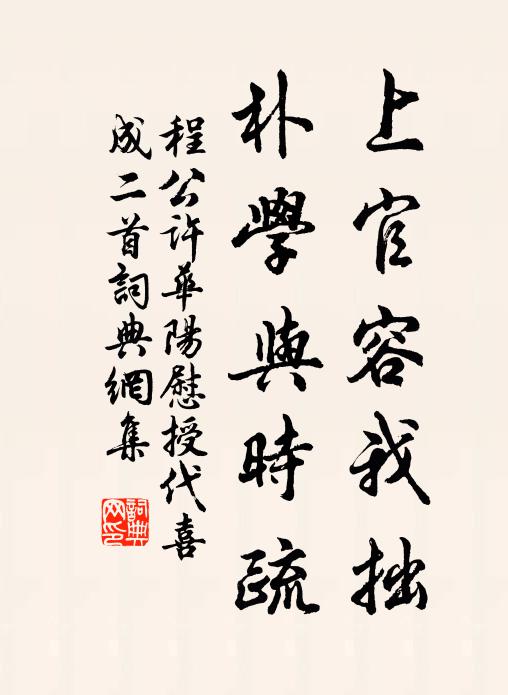 上官容我拙
朴學與時疏
程公許華陽慰授代喜
成二首詞典網集
詞典网印